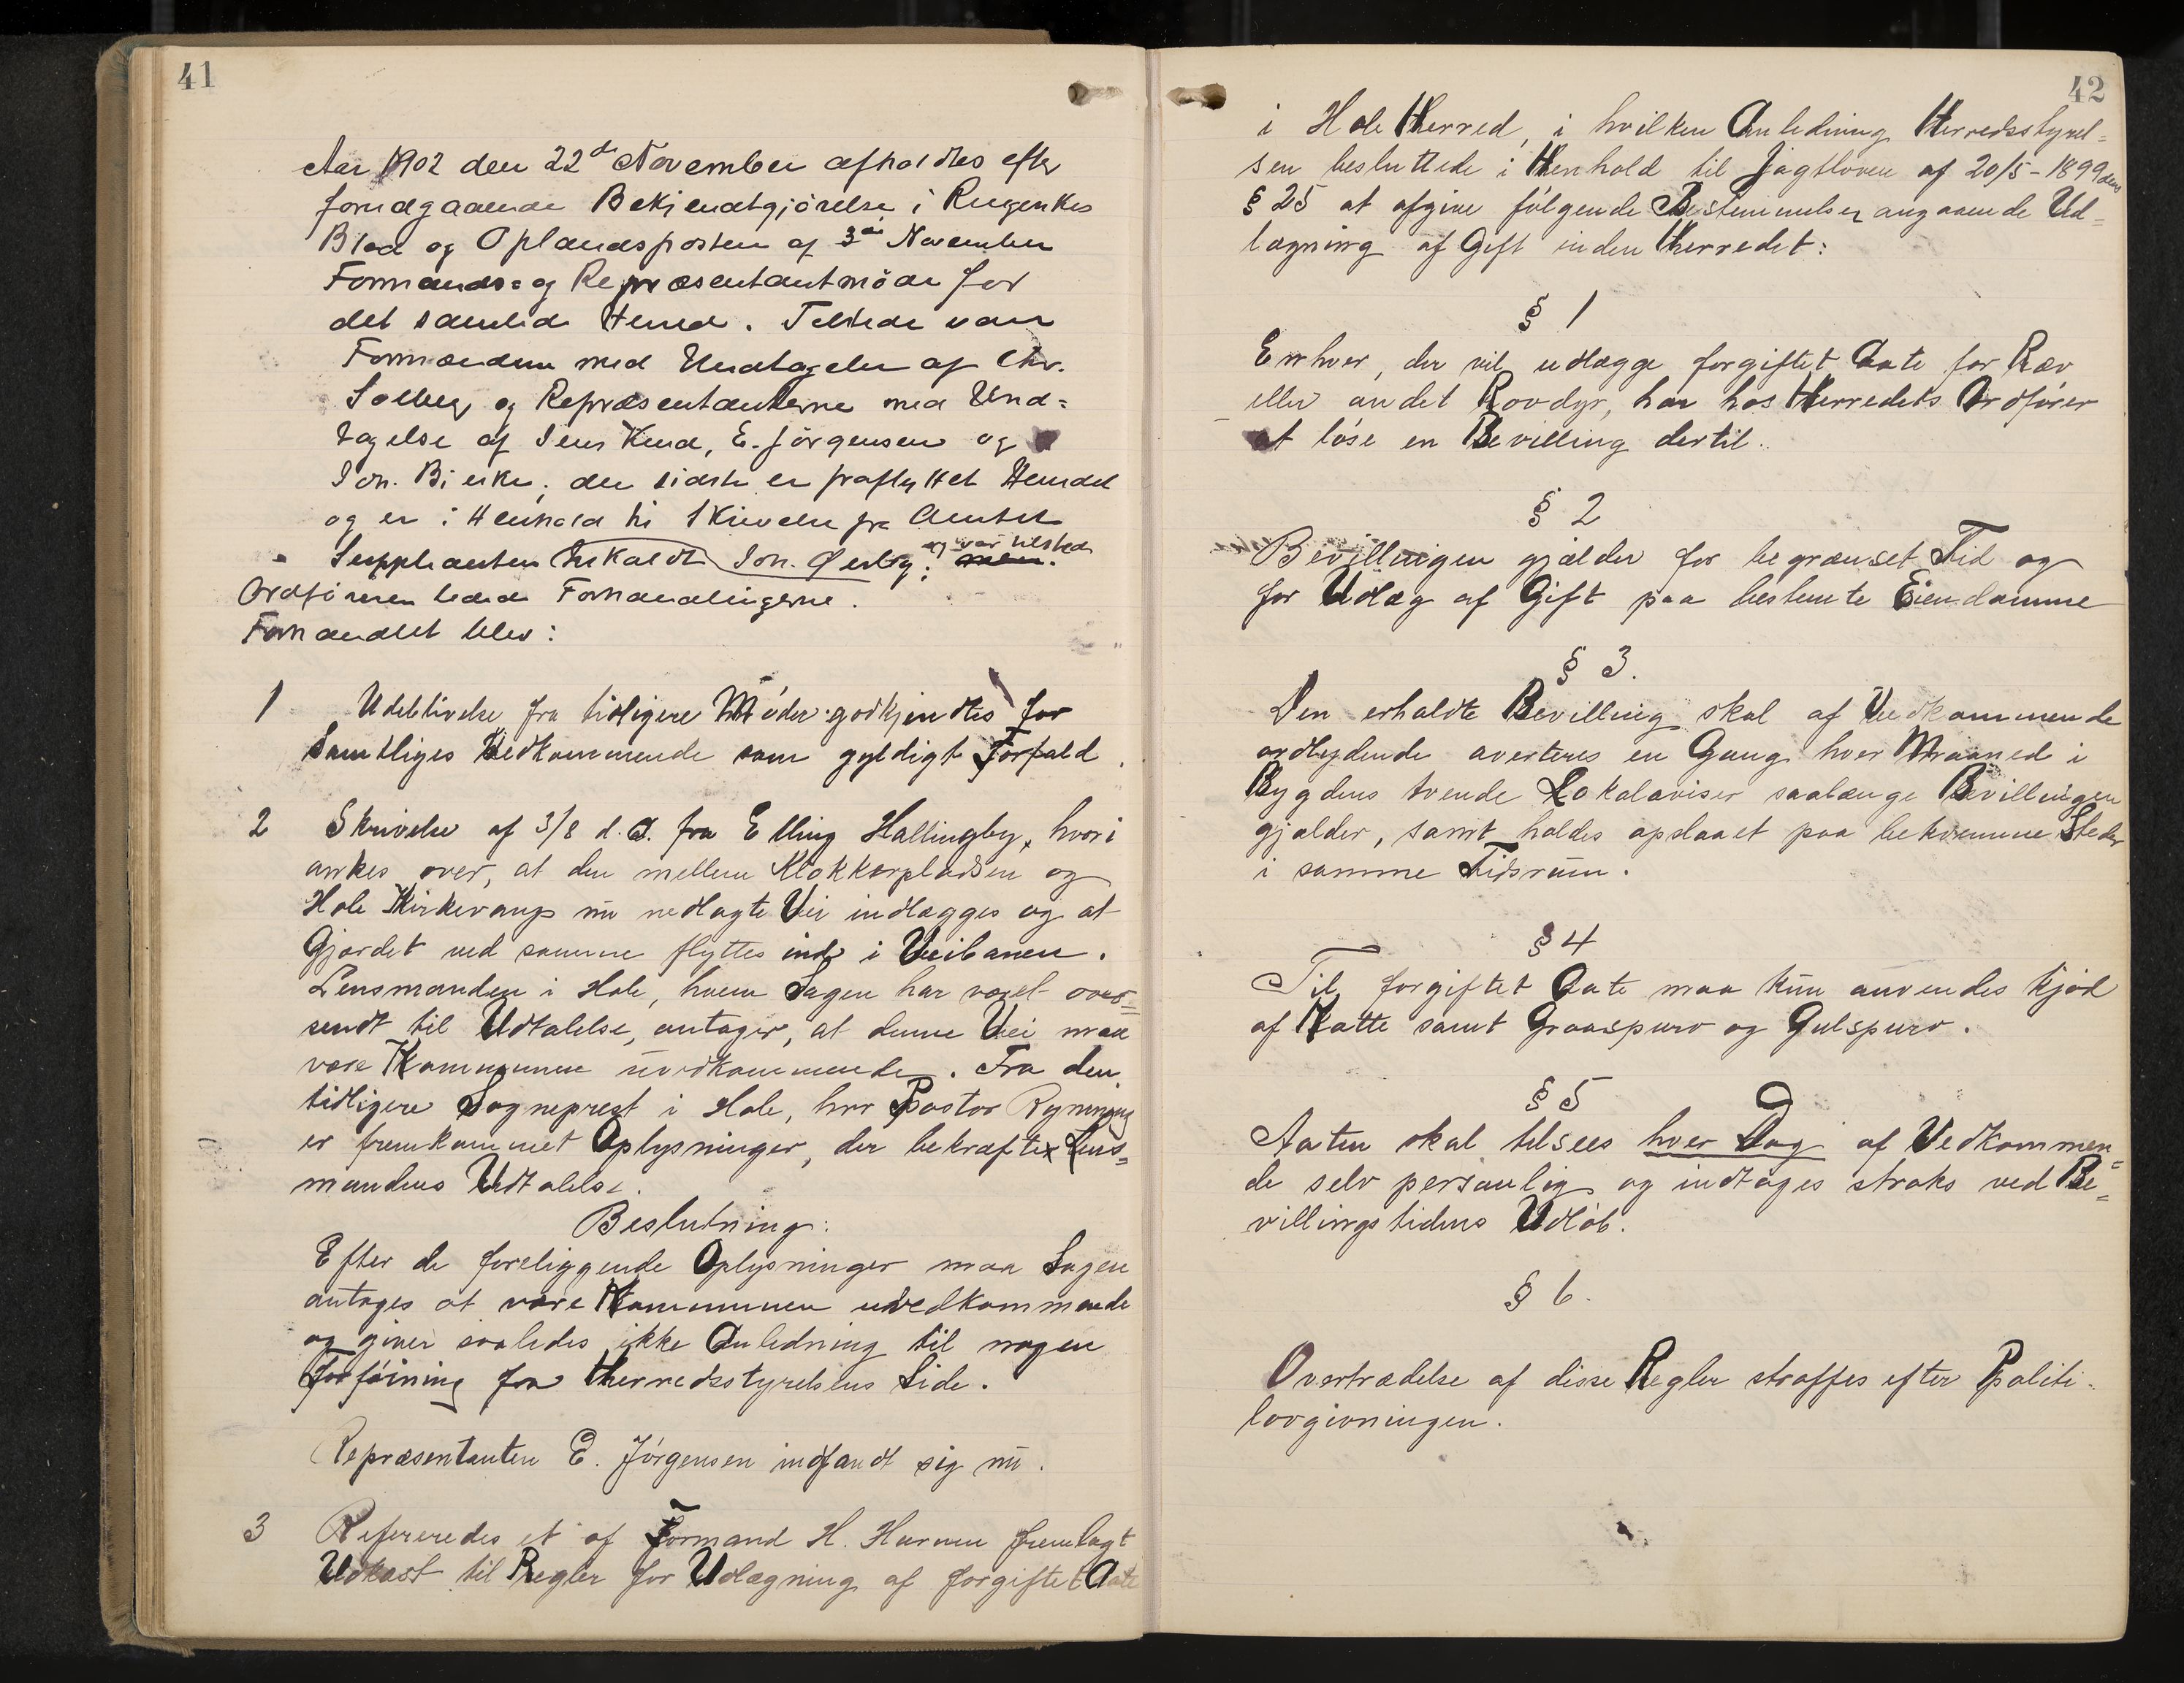 41
Aar 1902 den 22de November afholdtes efter
forudgaaende Bekjendtgjörelse i Ringerikes
Blad og Oplandsposten af 3die November
Formands- og Repræsentantmöde for
det samlede Herred. Tilstede var
Formændene med Undtagelse af Chr.
Solberg og Repræsentanterne med Und=
tagelse af Jens Krud, E. Jörgensen og
Joh. Bjerke; den sidste er fraflyttet Herredet
og er i Henhold til Skrivelse fra Amtet
Suppleanten indkaldt Joh. Øerby; og var tilstede
Ordföreren ledede Forhandlingerne.
Forhandlet blev:
1 Udeblivelse fra tidligere Möder godkjendtes for
samtliges Vedkommende som gyldigt Forfald.
2 Skrivelse af 3/8 d.A. fra Elling Hallingby, hvori
ankes over, at den mellem Klokkerpladsen og
Hole Kirkevang nu nedlagte Vei indlægges og at
Gjærdet ved samme flyttes ind i Veibanen.
Lensmanden i Hole, hvem Sagen har været over=
sendt til Udtalelse, antager, at denne Vei maa
være Kommunen uvedkommende. Fra den
tidligere Sogneprest i Hole, hrr Pastor Ryning
er fremkommet Oplysninger, der bekræfter Lens=
mandens Udtalelse.
Beslutning:
Efter de foreliggende Oplysninger maa Sagen
antages at være Kommunen uvedkommende
og giver saaledes ikke Anledning til nogen
Forföining fra Herredsstyrelsens Side.
Repræsentanten E. Jörgensen indfandt sig nu.
3 Refereredes et af Formand H. Hurum fremlagt
Udkast til Regler for Udlægning af forgiftet Aate
42
i Hole Herred, i hvilken Anledning Herredsstyrel=
sen besluttede i Henhold til Jagtloven af 20/5-1899 dens
§ 25 at afgive fölgende Bestemmelser angaaende Ud=
lægning af Gift inden Herredet:
§ 1
Enhver, der vil udlægge forgiftet Aate for Ræv
eller andet Rovdyr, har hos Herredets Ordfører
at löse en Bevilling dertil.
§ 2
Bevillingen gjælder for begrænset Tid og
for Udlæg af Gift paa bestemte Eiendomme
§ 3.
Den erholdte Bevilling skal af Vedkommende
ordlydende averteres en Gang hver Maaned i
Bygdens tvende Lokalaviser saalænge Bevillingen
gjælder, samt holdes opslaaet paa bekvemme Steder
i samme Tidsrum.
§ 4
Til forgiftet Aate maa kun anvendes kjöd
af Katte samt Graaspurv og Gulspurv.
§ 5
Aaten skal tilsees hver Dag af Vedkommen=
de selv personlig og indtages straks ved Be=
villingstidens Udlöb.
§ 6.
Overtrædelse af disse Regler straffes efter Politi-
lovgivningen.